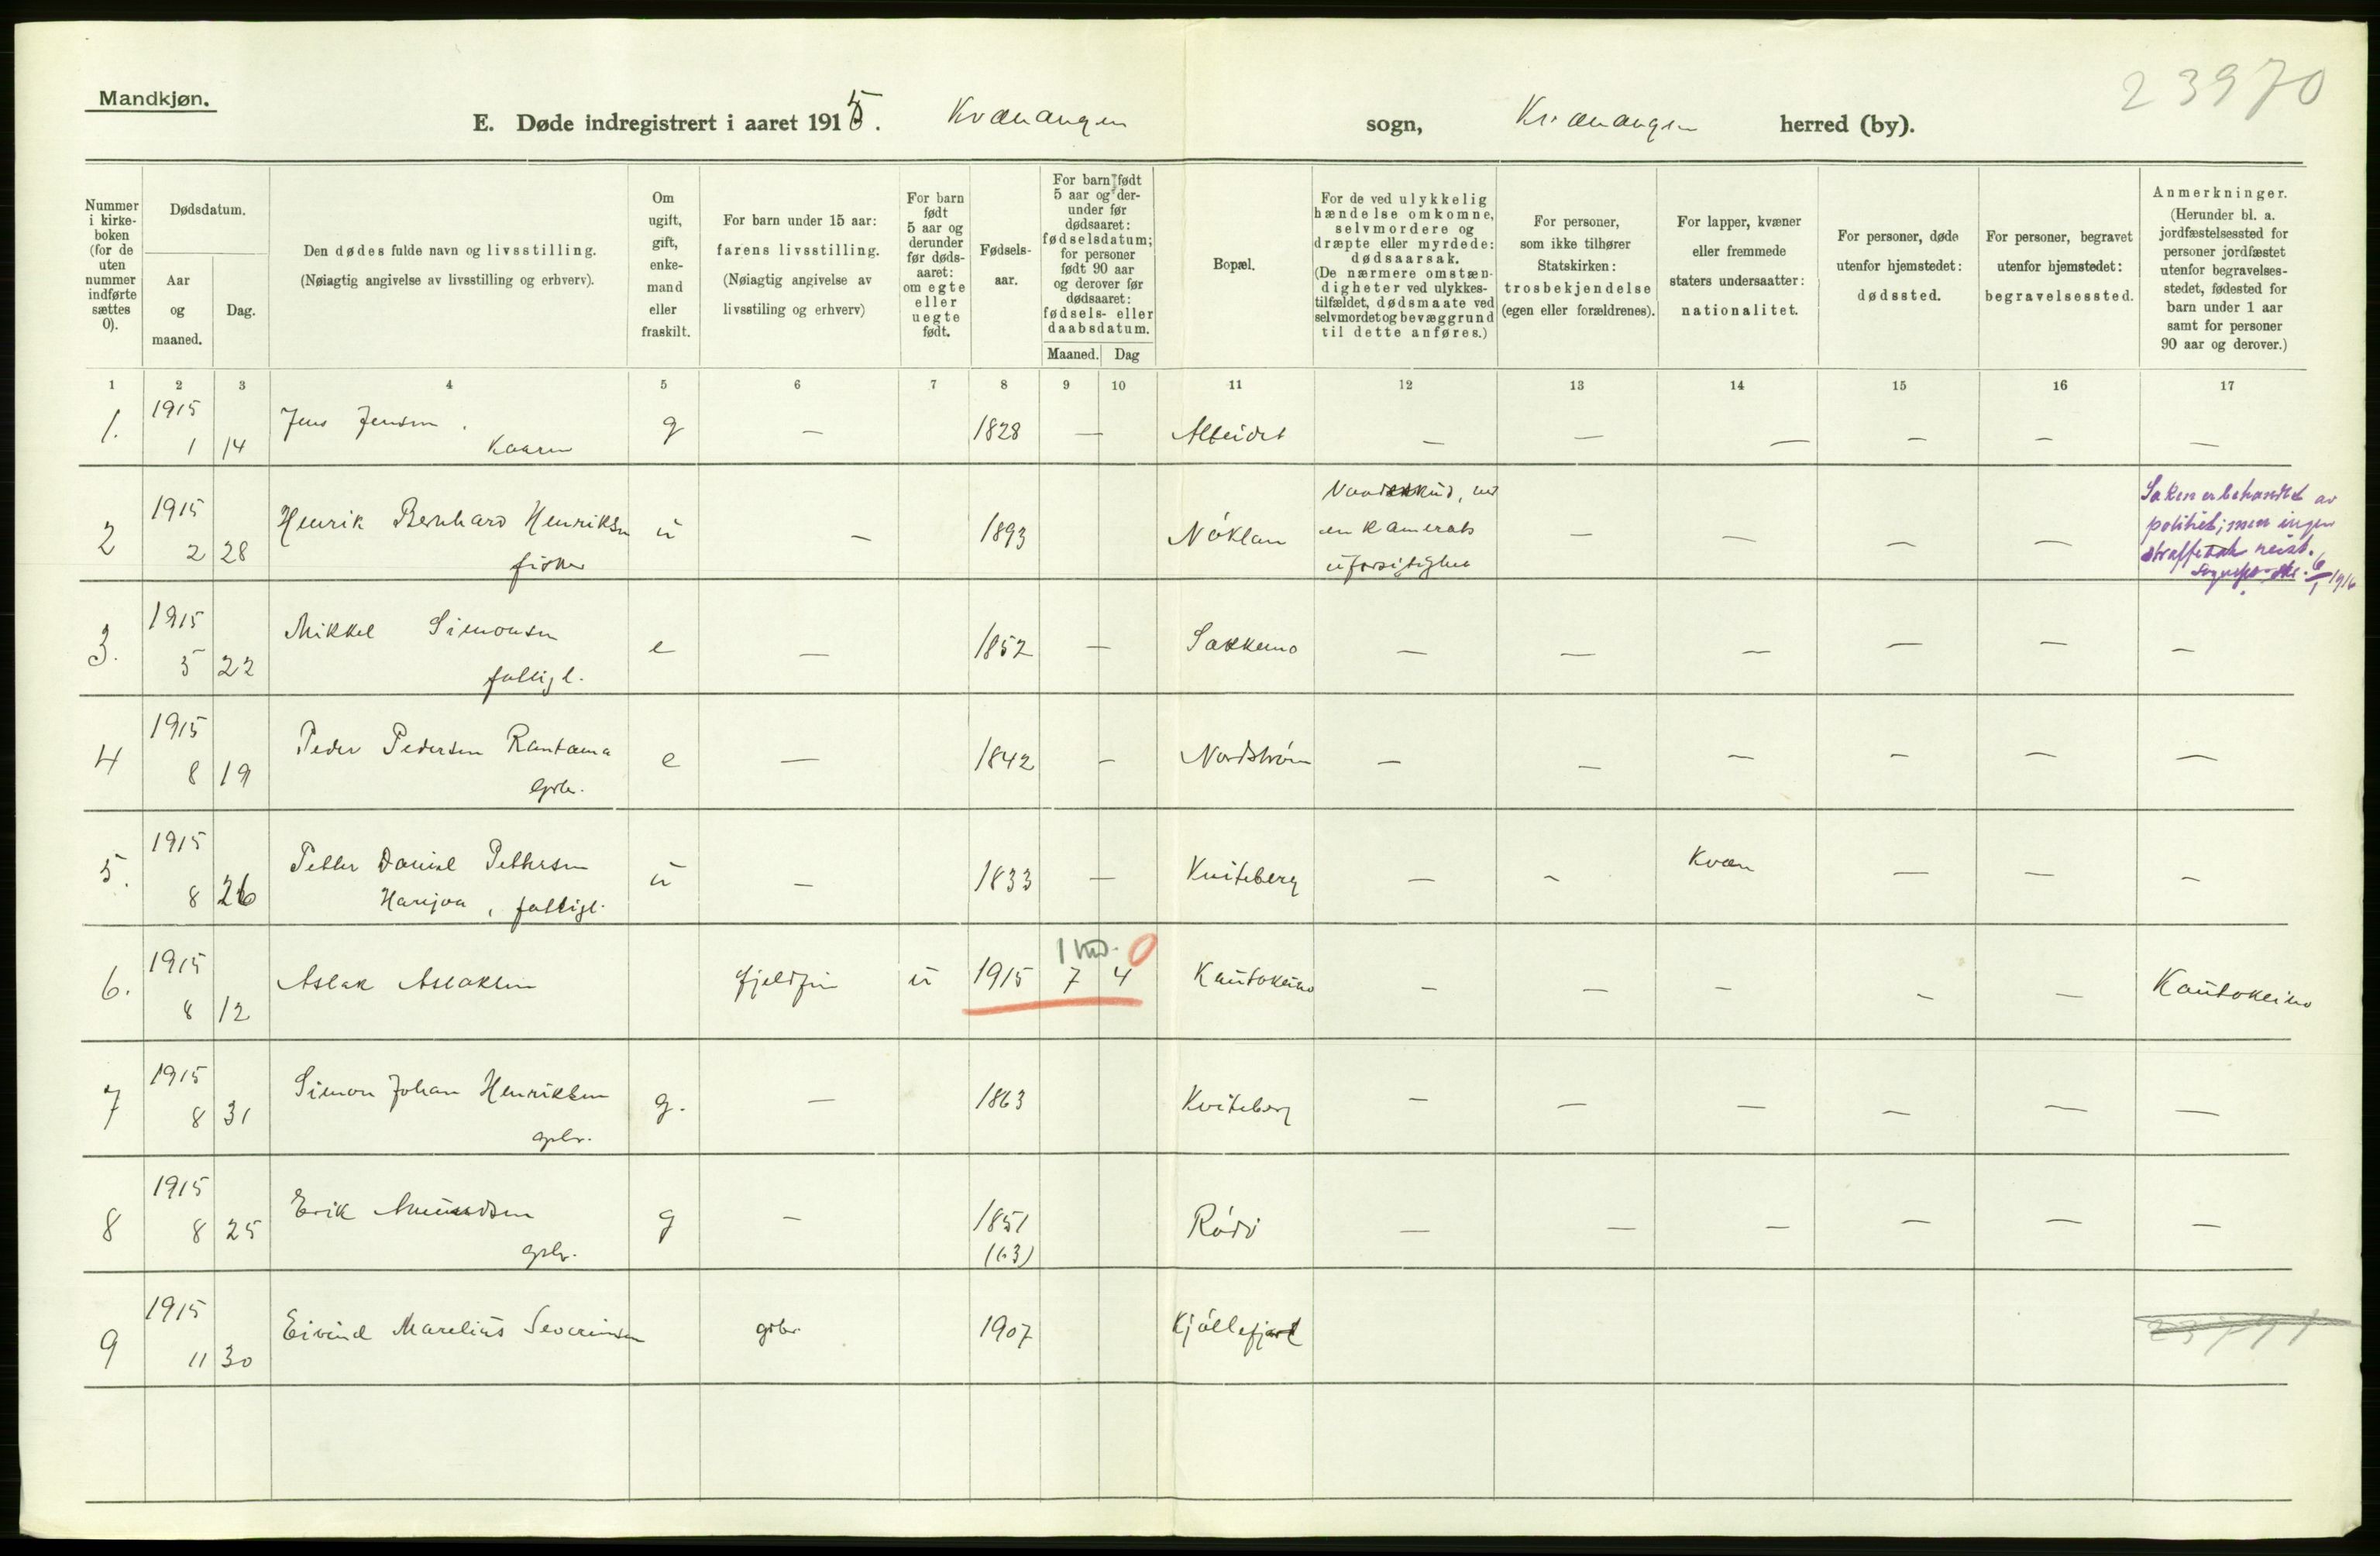 Mandkjøn.
23970
E. Døde indregistrert i aaret 1915. Kvænangen sogn, Kvænangen herred (by).
Nummer i kirke-boken (for de uten nummer indførte sættes 0).
Dødsdatum.
Aar og maaned.
Dag.
Den dødes fulde navn og livsstilling.
(Nøiagtig angivelse av livsstilling og erhverv).
Om ugift, gift, enke-mand eller fraskilt.
For barn under 15 aar: farens livsstilling.
(Nøiagtig angivelse av livsstiling og erhverv)
For barn født 5 aar og derunder før døds-aaret: om egte eller uegte født.
Fødsels-aar.
For barn født 5 aar og der-under før dødsaaret: fødselsdatum; for personer født 90 aar og derover før dødsaaret: fødsels- eller daabsdatum.
Maaned. Dag
Bopæl.
For de ved ulykkelig hændelse omkomne, selvmordere og dræpte eller myrdede: dødsaarsak.
(De nærmere omstæn-digheter ved ulykkes-tilfældet, dødsmaate ved selvmordet og bevæggrund til dette anføres.)
For personer, som ikke tilhører Statskirken: trosbekjendelse (egen eller forældrenes).
For lapper, kvæner eller fremmede staters undersaatter: nationalitet.
For personer, døde utenfor hjemstedet: dødssted.
For personer, begravet utenfor hjemstedet: begravelsessted.
Anmerkninger.
(Herunder bl. a. jordfæstelsessted for personer jordfæstet utenfor begravelses-stedet, fødested for barn under 1 aar samt for personer 90 aar og derover.)
1 2 3 4 5 6 7 8 9 10 11 12 13 14 15 16 17
1. 1915 1 14 Jens Jensen. Kaarm g — 1828 — Alteidet — — — — — —
2 1915 2 28 Henrik Bernhard Henriksen fisker u — 1893 Nøklan Vaadeskud, ved
en kamerats
uforsigtighet — — — —
Saken er behandlet av
politiet; men ingen
straffesak reist.
6/1 1916
3. 1915 5 22 Mikkel Simonsen fattigl. e — 1852 — Sakkemo — — — — — —
4 1915 8 19 Peder Pedersen Rantama gbr. e — 1842 — Nordstrøm — — — — — —
5. 1915 8 26 Petter Daniel Pettersen
Harijoa, fattigl. u — 1833 — Kviteberg — — Kvæn — — —
1 md. 0
6. 1915 8 12 Aslak Aslaksen fjeldfin u 1915 7 4 Kautokeino — — — — — Kautokeino
7 1915 8 31 Simon Johan Henriksen gbr. g. — 1863 Kviteberg — — — — — —
8 1915 8 25 Erik Amundsen gbr. g — 1851
(63) Rødø — — — — — —
9 1915 11 30 Eivind Marelius Severinsen gbr 1907 Kjøllefjord